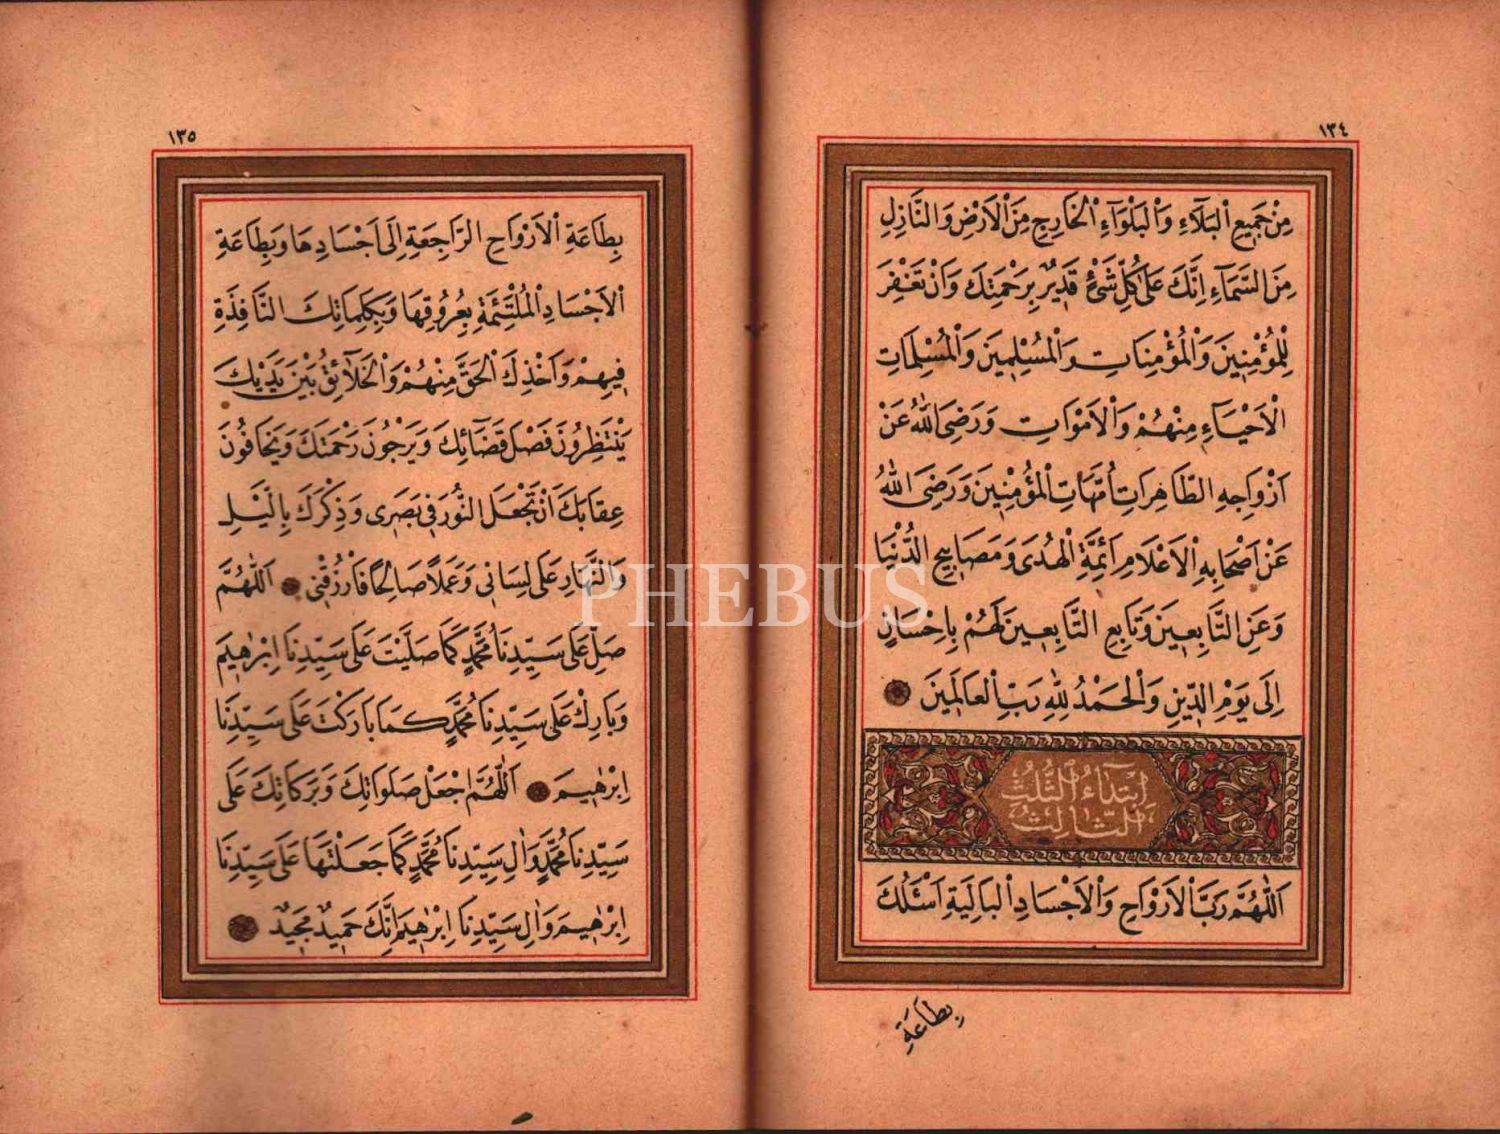 ١٣٤
مِنْ جَمِيعِ الْبَلَاءِ وَالْبَلْوَاءِ الْخَارِجِ مِنَ الْاَرْضِ وَالنَّازِلِ
مِنَ السَّمَاءِ اِنَّكَ عَلَى كُلِّ شَىْءٍ قَدِيرٌ بِرَحْمَتِكَ وَاَنْ تَغْفِرَ
لِلْمُؤْمِنِينَ وَالْمُؤْمِنَاتِ وَالْمُسْلِمِينَ وَالْمُسْلِمَاتِ
الْاَحْيَاءِ مِنْهُمْ وَالْاَمْوَاتِ وَرَضِىَ اللّٰهُ عَنْ
اَزْوَاجِهِ الطَّاهِرَاتِ اُمَّهَاتِ الْمُؤْمِنِينَ وَرَضِىَ اللّٰهُ
عَنْ اَصْحَابِهِ الْاَعْلَامِ اَئِمَّةِ الْهُدَى وَمَصَابِيحِ الدُّنْيَا
وَعَنِ التَّابِعِينَ وَتَابِعِ التَّابِعِينَ لَهُمْ بِاِحْسَانٍ
اِلَى يَوْمِ الدِّينِ وَالْحَمْدُ لِلّٰهِ رَبِّ الْعَالَمِينَ
اِبْتِدَاءُ الثُّلُثِ
الثَّالِثِ
اَللّٰهُمَّ رَبَّ الْاَرْوَاحِ وَالْاَجْسَادِ الْبَالِيَةِ اَسْئَلُكَ
بِطَاعَةِ
١٣٥
بِطَاعَةِ الْاَرْوَاحِ الرَّاجِعَةِ اِلَى اَجْسَادِهَا وَبِطَاعَةِ
الْاَجْسَادِ الْمُلْتَئِمَةِ بِعُرُوقِهَا وَبِكَلِمَاتِكَ النَّافِذَةِ
فِيهِمْ وَاَخْذِكَ الْحَقَّ مِنْهُمْ وَالْخَلَائِقُ بَيْنَ يَدَيْكَ
يَنْتَظِرُونَ فَصْلَ قَضَائِكَ وَيَرْجُونَ رَحْمَتَكَ وَيَخَافُونَ
عِقَابَكَ اَنْ تَجْعَلَ النُّورَ فِى بَصَرِى وَذِكْرَكَ بِاللَّيْلِ
وَالنَّهَارِ عَلَى لِسَانِى وَعَمَلًا صَالِحًا فَارْزُقْنِى اَللّٰهُمَّ
صَلِّ عَلَى سَيِّدِنَا مُحَمَّدٍ كَمَا صَلَّيْتَ عَلَى سَيِّدِنَا اِبْرٰهِيمَ
وَبَارِكْ عَلَى سَيِّدِنَا مُحَمَّدٍ كَمَا بَارَكْتَ عَلَى سَيِّدِنَا
اِبْرٰهِيمَ اَللّٰهُمَّ اجْعَلْ صَلَوَاتِكَ وَبَرَكَاتِكَ عَلَى
سَيِّدِنَا مُحَمَّدٍ وَاٰلِ سَيِّدِنَا مُحَمَّدٍ كَمَا جَعَلْتَهَا عَلَى سَيِّدِنَا
اِبْرٰهِيمَ وَاٰلِ سَيِّدِنَا اِبْرٰهِيمَ اِنَّكَ حَمِيدٌ مَجِيدٌ
PHEBUS